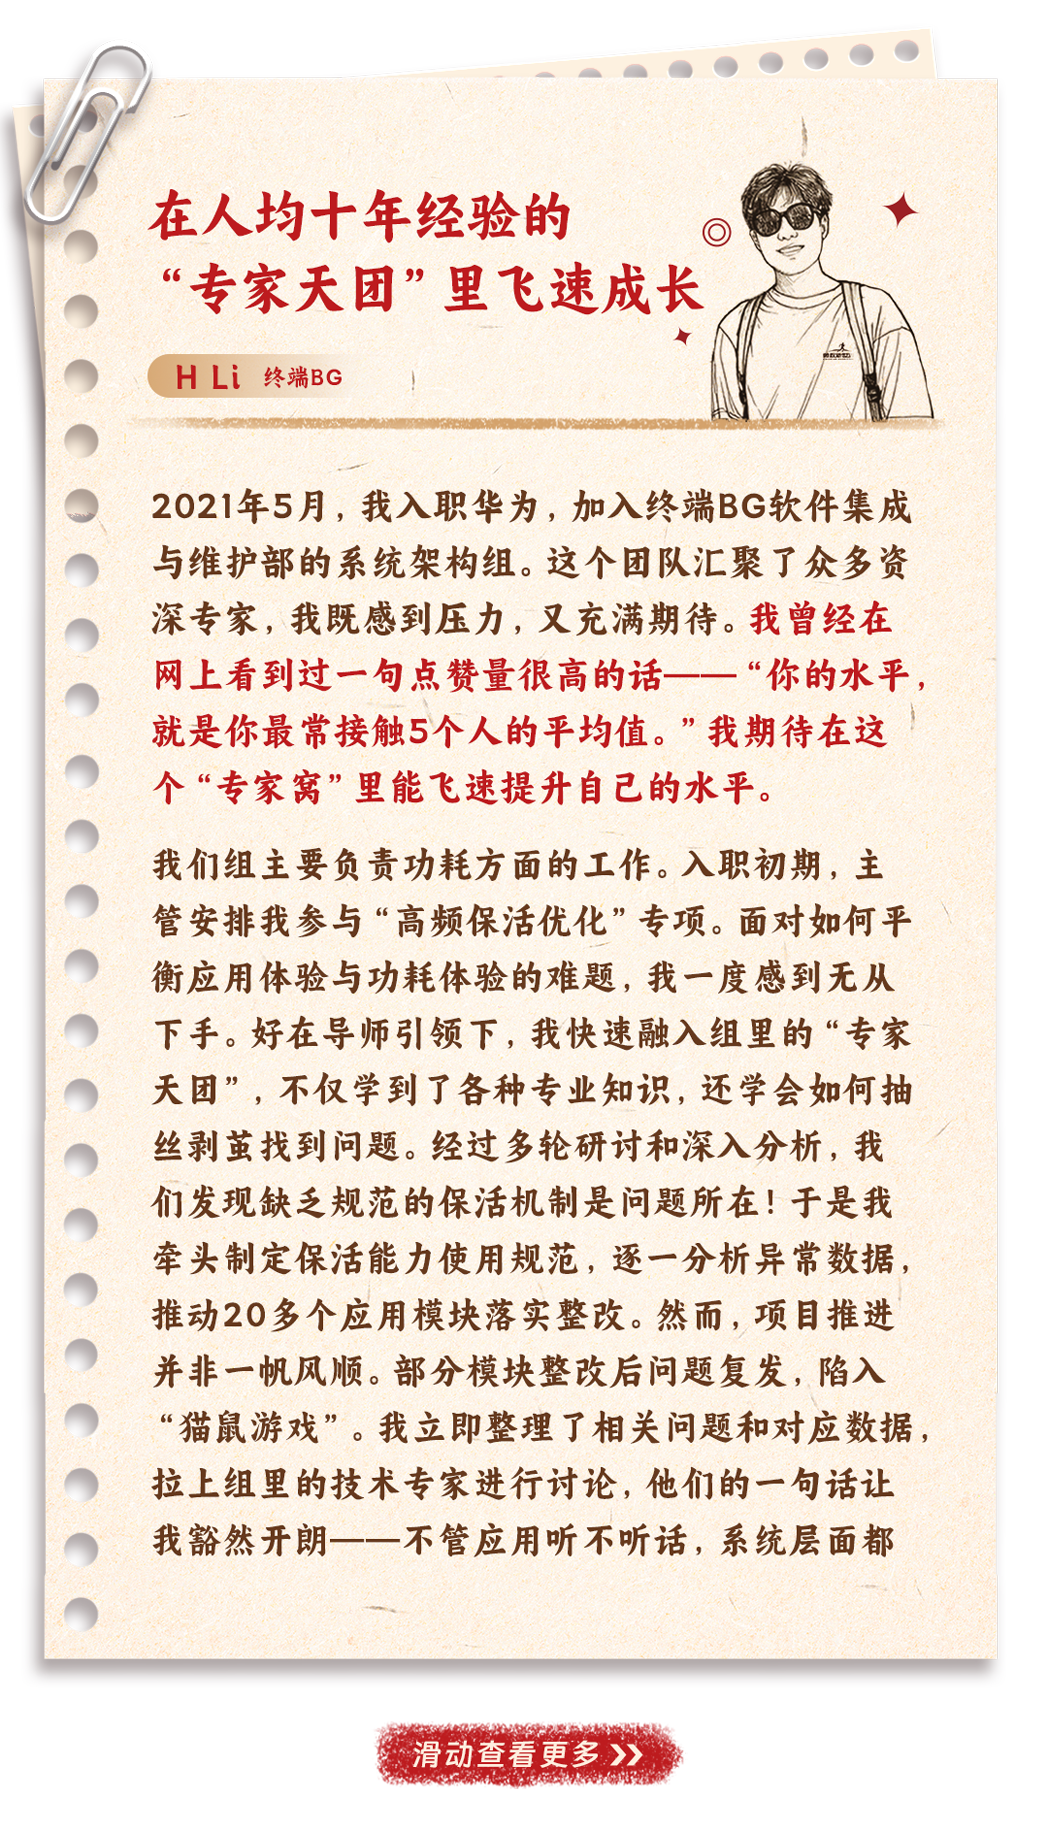 在人均十年经验的
“专家天团”里飞速成长
H Li 终端BG
2021年5月，我入职华为，加入终端BG软件集成
与维护部的系统架构组。这个团队汇聚了众多资
深专家，我既感到压力，又充满期待。我曾经在
网上看到过一句点赞量很高的话——“你的水平，
就是你最常接触5个人的平均值。”我期待在这
个“专家窝”里能飞速提升自己的水平。
我们组主要负责功耗方面的工作。入职初期，主
管安排我参与“高频保活优化”专项。面对如何平
衡应用体验与功耗体验的难题，我一度感到无从
下手。好在导师引领下，我快速融入组里的“专家
天团”，不仅学到了各种专业知识，还学会如何抽
丝剥茧找到问题。经过多轮研讨和深入分析，我
们发现缺乏规范的保活机制是问题所在！于是我
牵头制定保活能力使用规范，逐一分析异常数据，
推动20多个应用模块落实整改。然而，项目推进
并非一帆风顺。部分模块整改后问题复发，陷入
“猫鼠游戏”。我立即整理了相关问题和对应数据，
拉上组里的技术专家进行讨论，他们的一句话让
我豁然开朗——不管应用听不听话，系统层面都
滑动查看更多